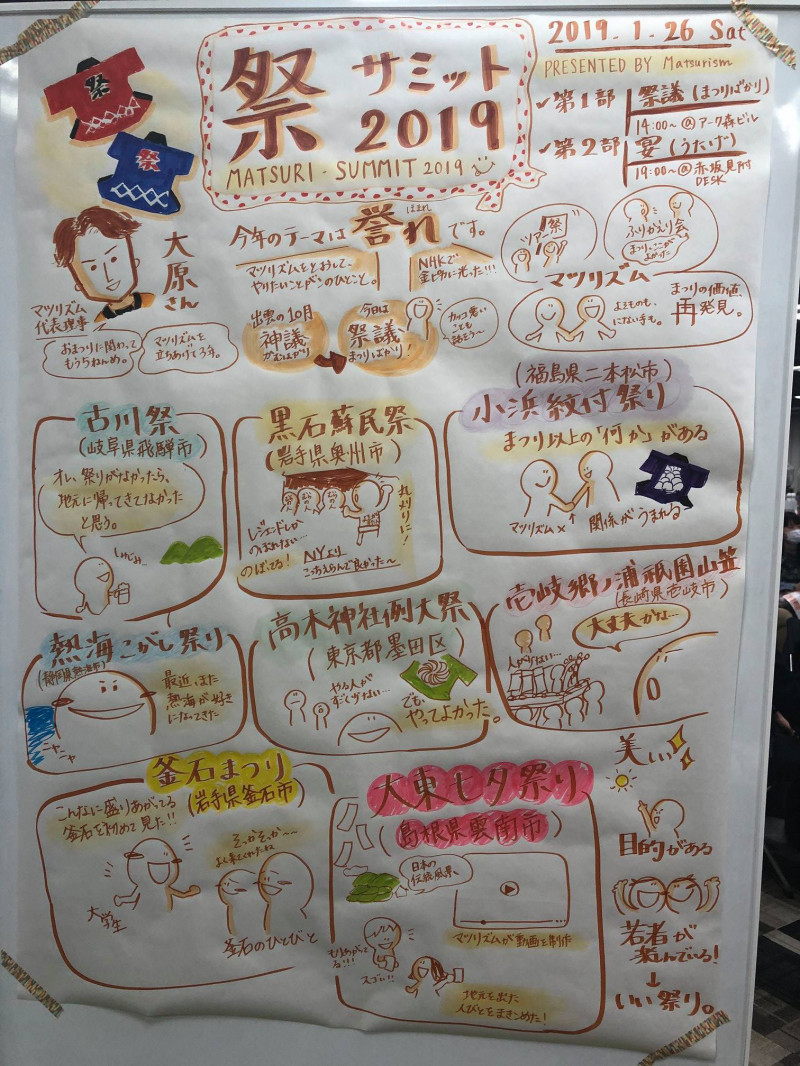 祭
祭
祭 サミット
2019
MATSURI・SUMMIT 2019
2019.1.26 Sat
PRESENTED BY Matsurism
第1部 祭議(まつりばかり)
14:00〜@アーク森ビル
第2部 宴(うたげ)
19:00〜@赤坂見附
DESK
大原さん
マツリズム
代表理事
おまつりに関わって
もうちねんめ。
マツリズムを
立ちあげて3う。
今年のテーマは 誉れ です。
ほまれ
マツリズムをとおして、
やりたいことがこのひとこと。
NHKで
金ピカに光った!!!
出雲の10月
神議
かむはかり
今日は
祭議
まつりばかり!
カッコ悪い
ことも
話そう〜
ツアー祭
ふりかえり会
まつりのここが
よかった
マツリズム
よそものも、
にない手も。
まつりの価値、
再発見。
古川祭
(岐阜県飛騨市)
オレ、祭りがなかったら、
地元に帰ってきてなかった
と思う。
しみじみ…
黒石蘇民祭
(岩手県奥州市)
丸刈りに!
レジェンドしか
のぼれない…
のぼってる!
NYより
こっちえらんで良かった〜
(福島県二本松市)
小浜紋付祭り
まつり以上の「何か」がある
マツリズム×
関係がうまれる
熱海こがし祭り
(静岡県熱海市)
最近、また
熱海が好き
になってきた
ニヤニヤ
高木神社例大祭
(東京都墨田区)
やる人が
すくない…
でも、
やってよかった。
壱岐郷ノ浦祇園山笠
(長崎県壱岐市)
人がいない…
大丈夫かな…
釜石まつり
(岩手県釜石市)
こんなに盛りあがってる
釜石を初めて見た!!
大学生
そっかそっか〜〜
よく来てくれたね
釜石のひとびと
大東七夕祭り
(島根県雲南市)
日本の
伝統風景、
マツリズムが動画を制作
もりあがってる!!!
スゴい!!
地元を出た
人びとをまきこめた!
美しい
目的がある
若者が
楽しんでいる!
↓
いい祭り。